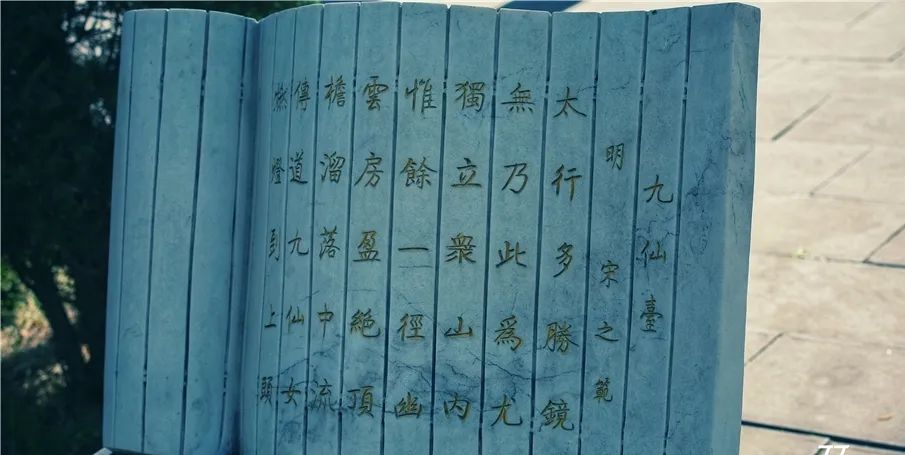 九仙臺
明 宋之範
太行多勝鏡
無乃此爲尤
獨立衆山內
惟餘一徑幽
雲房盈絶頂
檐溜落中流
傳道九仙女
燃燈到上頭